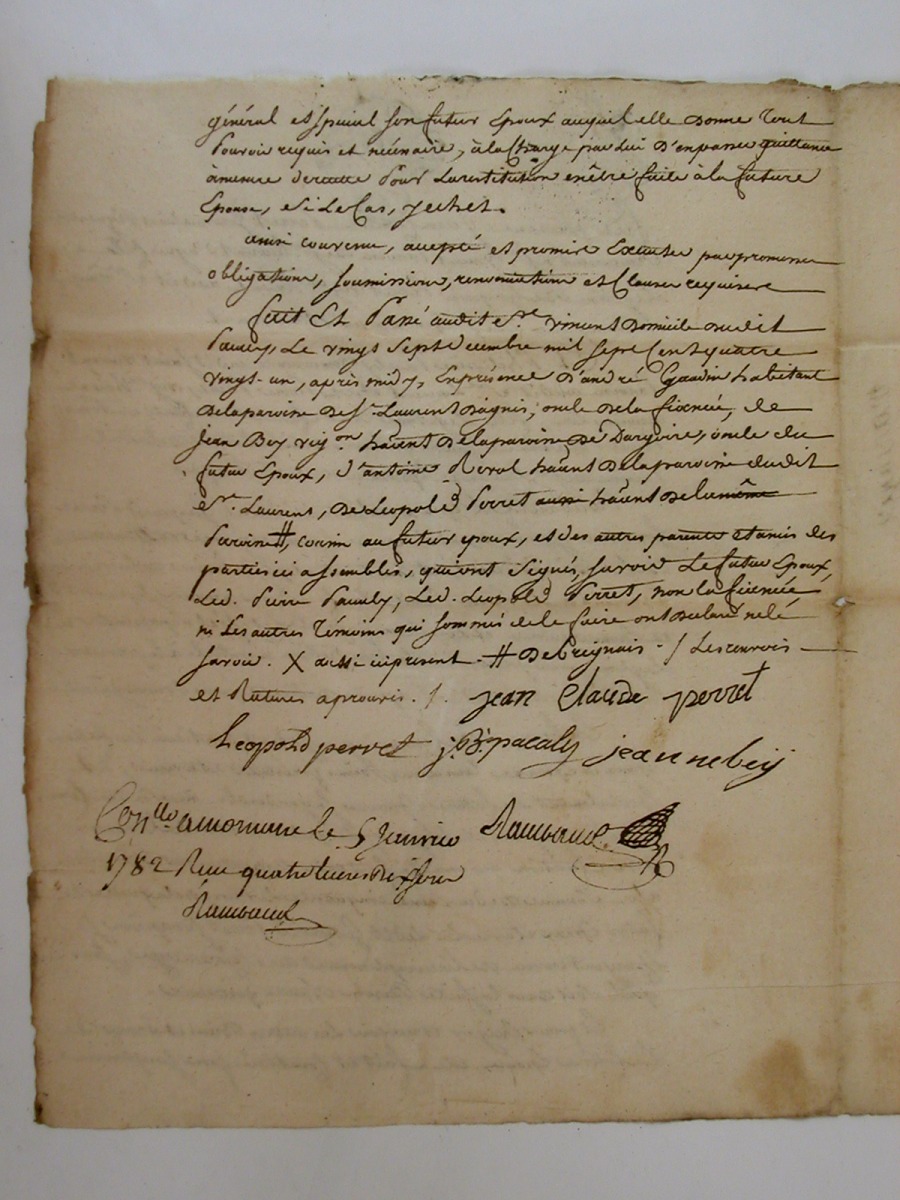 général et spécial son futur Epoux auquel elle donne tout
Pouvoir requis et nécessaire, à la Charge par lui d'en passer quittance
à mesure de recette Pour La restitution en être faite à la future
Epouse, si Le Cas, y echet.
ainsi convenu, accepté et promis Executer par promesses
obligations, soumissions, renonciations et Clauses requises
fait Et Passé audit St. vincent Domicile dudit
Le vingt Sept décembre mil sept Cent quatre
vingt-un, après midy, En présence d'andré Gaudin habitant
De la paroisse De St. Laurent D'agnis, oncle De la fiancée, de
jean Bey vig.on ha͞ent De la paroisse De Dargoire, oncle du
futur Epoux, d'antoine ha͞ent De la paroisse dudit
St. Laurent, De Leopold Perret aussi ha͞ent De la même
Paroisse #, cousin au futur epoux, et des autres parents et amis des
parties ici assemblés, qui ont signés, savoir Le futur Epoux
Led. Led. Leopold Perret, non la fiancée
ni Les autres Témoins qui sommés de le faire ont Déclaré ne le
savoir. X aussi ici present # De Brignais / Les renvois
et Ratures aprouvés. /. jean Claude perret
Leopold perret j.B. pacaly jean ne beÿ
Con.llé a mornant le 5 Janvier Rambaud
1782 Reçu quatre livres dix sous
Rambaud